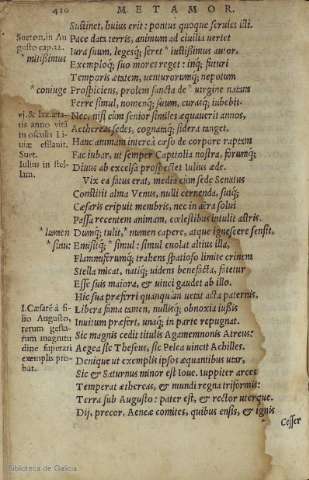 420 METAMOR.
Sustinet, huius erit: pontus quoque seruiet illi.
Sueton. in Au
gusto cap. 22.
* mitißimus
Pace data terris, animum ad ciuilia vertet
Iura suum, legesq; feret * iustißimus autor.
Exemploq; suo mores reget: inq; futuri
Temporis ætatem, venturorumq; nepotum
* coniuge
Prospiciens, prolem sancta de * virgine natam
Ferre simul, nomenq; suum, curasq; iubebit.
Nec, nisi cum senior similes æquauerit annos,
Aethereas sedes, cognataq; sidera tanget.
Hanc animam interea cæso de corpore raptam
Fac iubar, ut semper Capitolia nostra, forumq;
Diuus ab excelsa prospectet Iulius æde.
tis anno vitã
in osculis Li-
uiæ efflauit.
Suet.
Iulius in stel-
lam.
Vix ea fatus erat, media cum sede Senatus
Constitit alma Venus, nulli cernenda, suiq;
Cæsaris eripuit membris, nec in aëra solui
Passa recentem animam, cœlestibus intulit astris.
* lumen
Dumq; tulit, * numen capere, atque ignescere sensit,
* sinu:
Emisitq; * simul: simul euolat altius illa,
Flammiferumq; trahens spatioso limite crinem
Stella micat, natiq; uidens benefacta, fatetur
Esse suis maiora, & uinci gaudet ab illo.
Hic sua præferri quanquam uetat acta paternis,
I. Cæsarẽ à fi-
lio Augusto,
rerum gesta-
rum magnitu
dine superari
exemplis pro-
bat.
Libera fama tamen, nullisq; obnoxia iußis
Inuitum præfert, unaq; in parte repugnat.
Sic magnis cedit titulis Agamemnonis Atreus:
Aegea sic Theseus, sic Pelea vincit Achilles.
Denique ut exemplis ipsos æquantibus utar,
Sic & Saturnus minor est Ioue. Iuppiter arces
Temperat æthereas, & mundi regna triformis:
Terra sub Augusto: pater est, & rector uterque.
Dij, precor, Aeneæ comites, quibus ensis, & ignis
Cesser
Biblioteca de Galicia